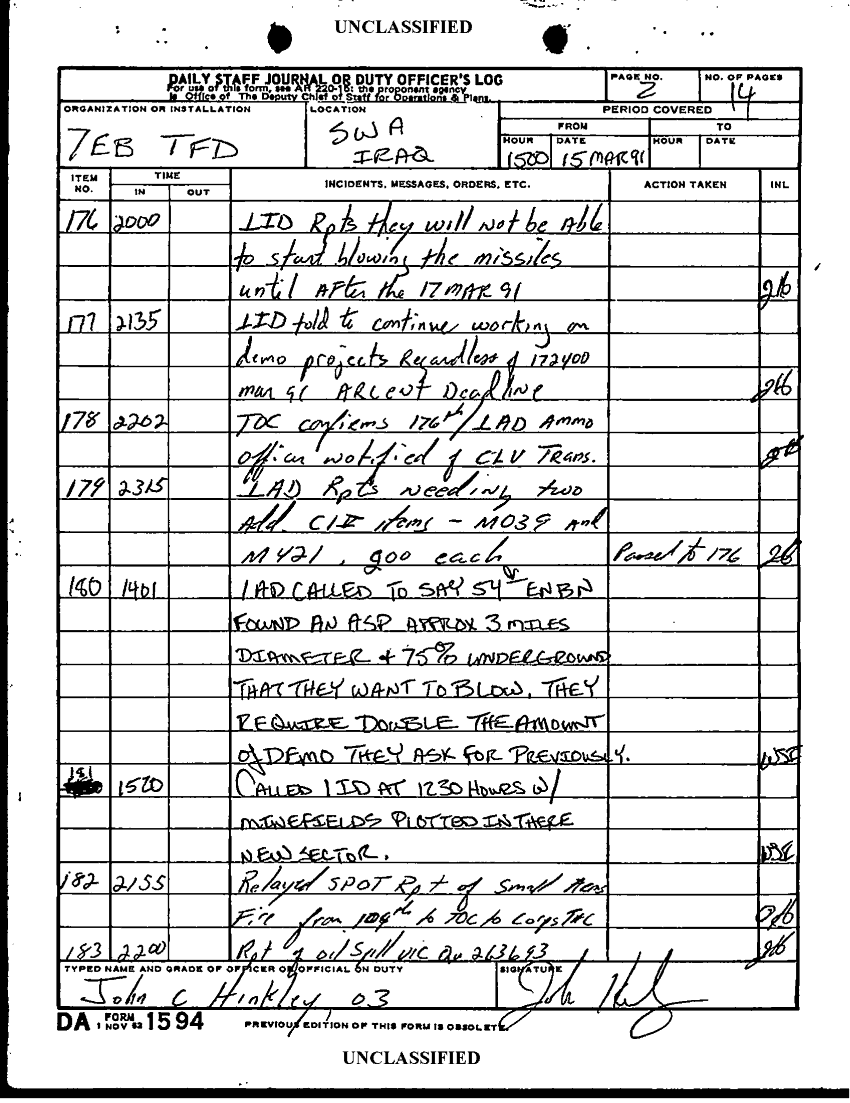 UNCLASSIFIED
DAILY STAFF JOURNAL OR DUTY OFFICER'S LOG
For use of this form, see AR 220-15: the proponent agency
is Office of The Deputy Chief of Staff for Operations & Plans.
PAGE NO.
2
NO. OF PAGES
14
ORGANIZATION OR INSTALLATION
7EB TFD
LOCATION
SWA
IRAQ
PERIOD COVERED
FROM
TO
HOUR
DATE
HOUR
DATE
1500
15 MAR 91
ITEM NO.
TIME
IN
OUT
INCIDENTS, MESSAGES, ORDERS, ETC.
ACTION TAKEN
INL
176 2000 1ID Rpts they will not be Able
to start blowing the missiles
until AFter the 17 MAR 91
177 2135 1ID told to continue working on
demo projects Regardless of 172400
mar 91 ARCent Deadline
178 2202 TOC confirms 176th/1AD Ammo
officer notified of CLV Trans.
179 2315 1AD Rpts needing two
Add. items - M039 And
M421, 900 each Passed to 176
180 1401 1AD CALLED TO SAY 54th EN BN
FOUND AN ASP APPROX 3 MILES
DIAMETER + 75% UNDERGROUND
THAT THEY WANT TO BLOW. THEY
REQUIRE DOUBLE THE AMOUNT
of DEMO THEY ASK FOR PREVIOUSLY.
181 1520 CALLED 1ID AT 1230 HOURS W/
MINEFIELDS PLOTTED IN THERE
NEW SECTOR.
182 2155 Relayed SPOT Rpt of Small Arms
Fire from 109th to TOC to Corps TAC
183 2200 Rpt of oil Spill vic Qu 263693
TYPED NAME AND GRADE OF OFFICER OR OFFICIAL ON DUTY
John C Hinkley O3
SIGNATURE
DA FORM 1 NOV 62 1594
PREVIOUS EDITION OF THIS FORM IS OBSOLETE.
UNCLASSIFIED